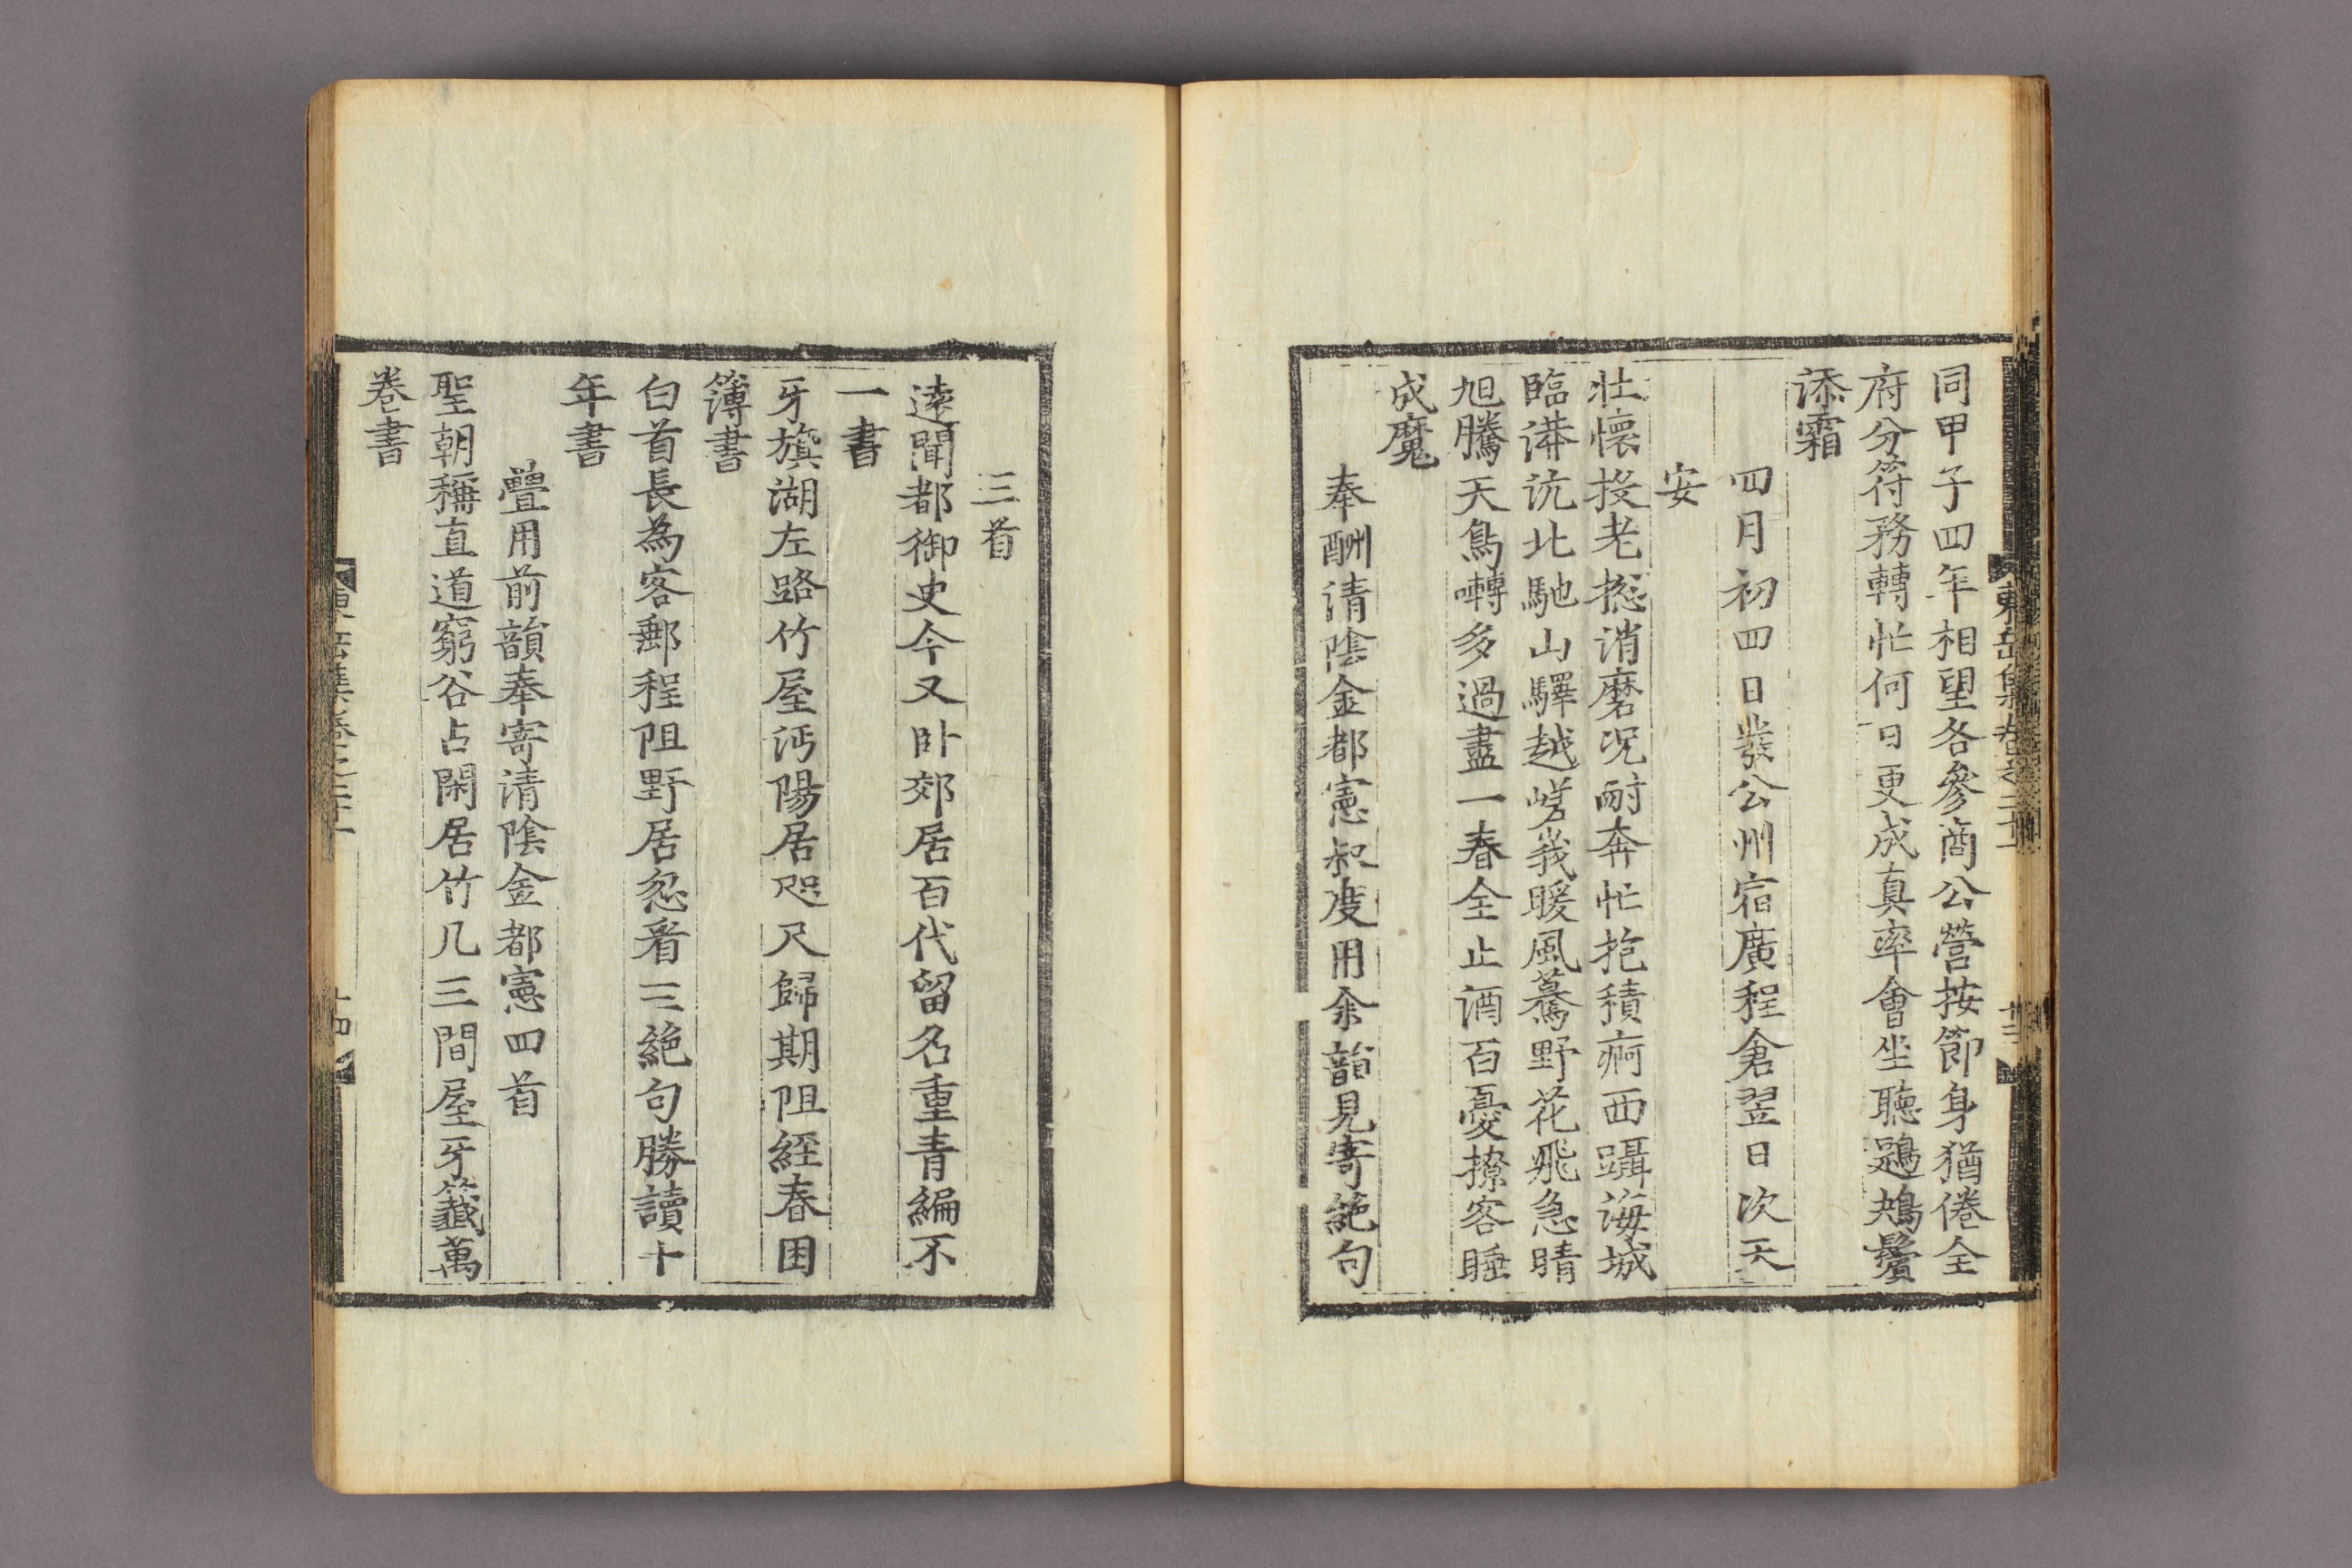 同甲子四年相望各參商公營按節身猶倦全
府分符務轉忙何日更成真率會坐聽鶗鴂鬢
添霜
四月初四日發公州宿廣程倉翌日次天
安
壯懷投老捴消磨况耐奔忙抱積痾西躡海城
臨漭沆北馳山驛越嵯峩暖風驀野花飛急晴
旭騰天鳥囀多過盡一春全止酒百憂撩客睡
成魔
奉酬清陰金都憲叔度用余韻見寄絶句
三首
逺聞都御史今又卧郊居百代留名重青編不
一書
牙旗湖左路竹屋沔陽居咫尺歸期阻經春困
簿書
白首長為客郵程阻野居忽看三絶句勝讀十
年書
疊用前韻奉寄清陰金都憲四首
聖朝稱直道窮谷占閑居竹几三間屋牙籤萬
卷書
東岳集卷之二十